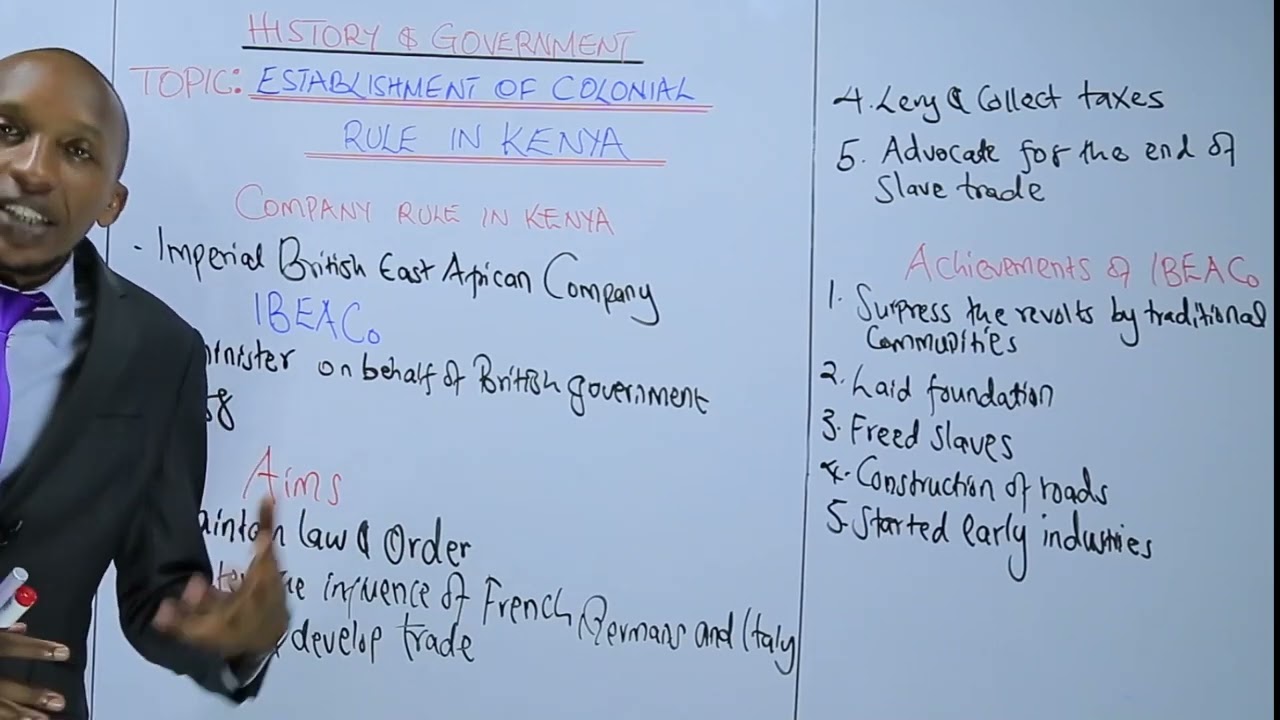 HISTORY & GOVERNMENT
TOPIC: ESTABLISHMENT OF COLONIAL
RULE IN KENYA
COMPANY RULE IN KENYA
- Imperial British East African Company
IBEACo
on behalf of British government
Aims
law & Order
influence of French Germans and Italy
develop trade
4. Levy & Collect taxes
5. Advocate for the end of
Slave trade
Achievements of IBEACo
1. Surpress the revolts by traditional
Commudities
2. Laid foundation
3. Freed slaves
4. Construction of roads
5. Started early industries